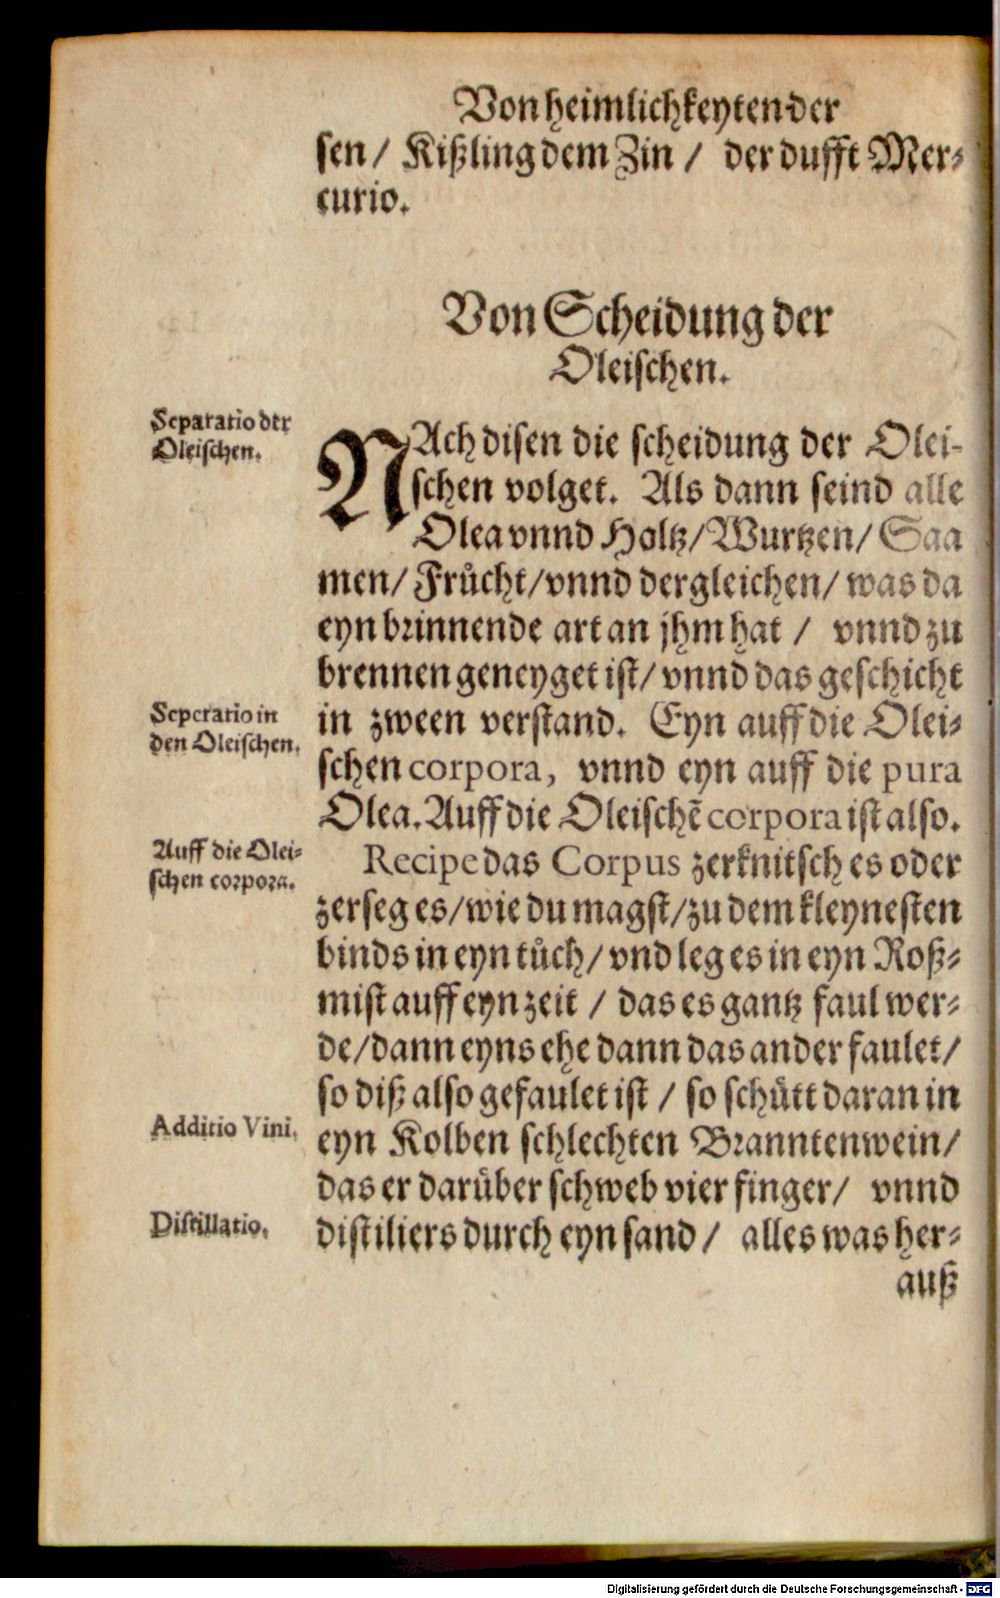 Von heimlichkeyten der
sen/ Kißling dem Zin / der dufft Mer⸗
curio.
Von Scheidung der
Oleischen.
Separatio der
Oleischen.
NAch disen die scheidung der Olei-
schen volget. Als dann seind alle
Olea vnnd Holtz/Wurtzen/ Saa
men/ Frůcht/vnnd dergleichen/ was da
eyn brinnende art an jhm hat / vnnd zu
brennen geneyget ist/ vnnd das geschicht
Seperatio in
den Oleischen.
in zween verstand. Eyn auff die Olei⸗
schen corpora, vnnd eyn auff die pura
Olea. Auff die Oleischẽ corpora ist also.
Auff die Olei⸗
schen corpora.
Recipe das Corpus zerknitsch es oder
zerseg es/wie du magst/zu dem kleynesten
binds in eyn tůch/ vnd leg es in eyn Roß⸗
mist auff eyn zeit / das es gantz faul wer⸗
de/dann eyns ehe dann das ander faulet/
so diß also gefaulet ist / so schůtt daran in
Additio Vini.
eyn Kolben schlechten Branntenwein/
das er darůber schweb vier finger/ vnnd
Distillatio.
distiliers durch eyn sand / alles was her⸗
auß
Digitalisierung gefördert durch die Deutsche Forschungsgemeinschaft - DFG